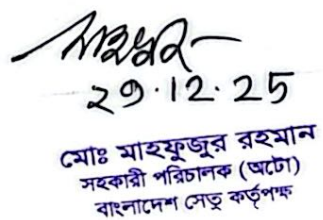 29.12.25
মোঃ মাহফুজুর রহমান
সহকারী পরিচালক (অটো)
বাংলাদেশ সেতু কর্তৃপক্ষ